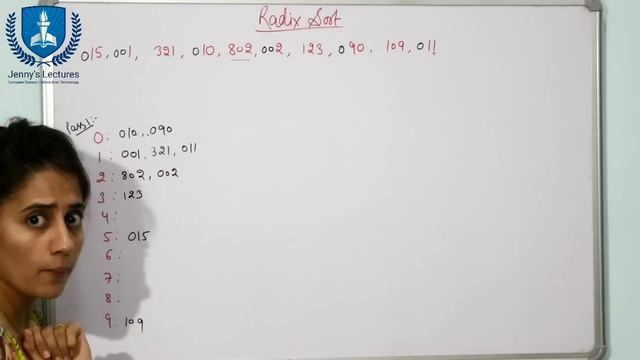 Radix Sort
015, 001, 321, 010, 802, 002, 123, 090, 109, 011
Jenny's Lectures
Computer Science / Information Technology
Pass 1:-
0: 010, 090
1: 001, 321, 011
2: 802, 002
3: 123
4:
5: 015
6:
7:
8:
9: 109